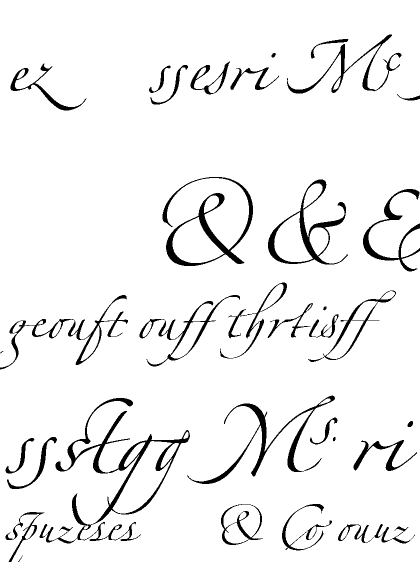 ez ssesri Mc
& & &
geouft ouff thrtisff
ssstgg Ms. ri
spuzeses & Co ouuz